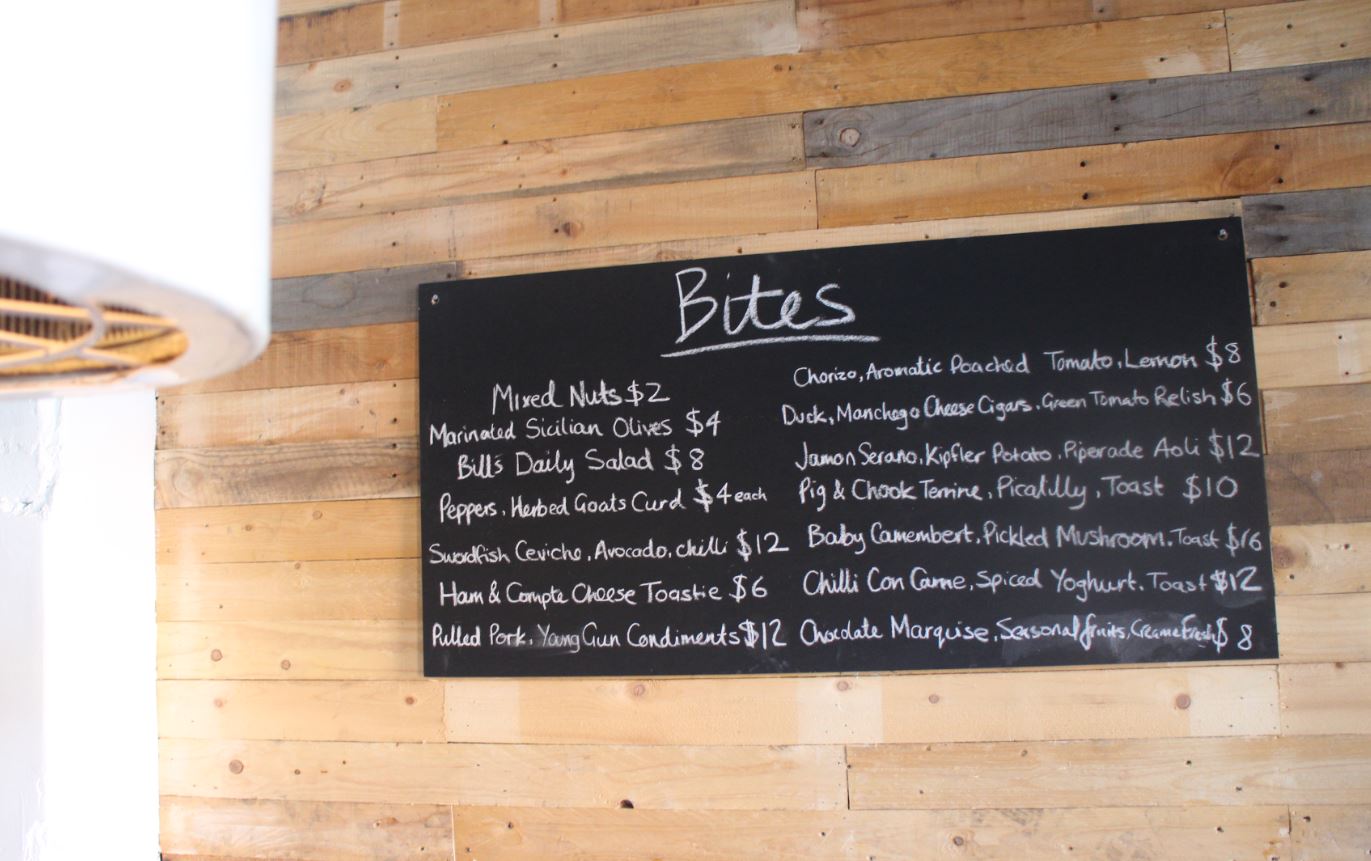 Bites
Mixed Nuts $2
Marinated Sicilian Olives $4
Bill's Daily Salad $8
Peppers, Herbed Goats Curd $4 each
Swordfish Ceviche, Avocado, chilli $12
Ham & Compte Cheese Toastie $6
Pulled Pork, Young Gun Condiments $12
Chorizo, Aromatic Poached Tomato, Lemon $8
Duck, Manchego Cheese Cigars, Green Tomato Relish $6
Jamon Serano, Kipfler Potato, Piperade Aoli $12
Pig & Chook Terrine, Picalilly, Toast $10
Baby Camembert, Pickled Mushroom, Toast $16
Chilli Con Carne, Spiced Yoghurt, Toast $12
Chocolate Marquise, Seasonal fruits, Creme Fresh $8